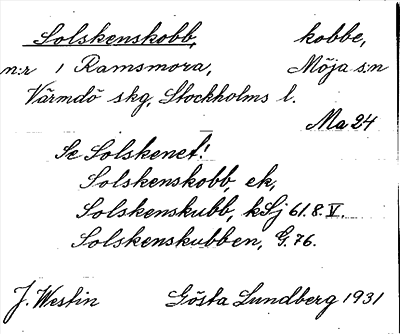 Solskenskobb, kobbe,
n:r 1 Ramsmora, Möja s:n
Värmdö skg, Stockholms l.
Ma 24
Se Solskenet!
Solskenskobb, ek,
Solskenskubb, kSj 61.8.V.
Solskenskubben, G.76.
J. Westin Gösta Lundberg 1931